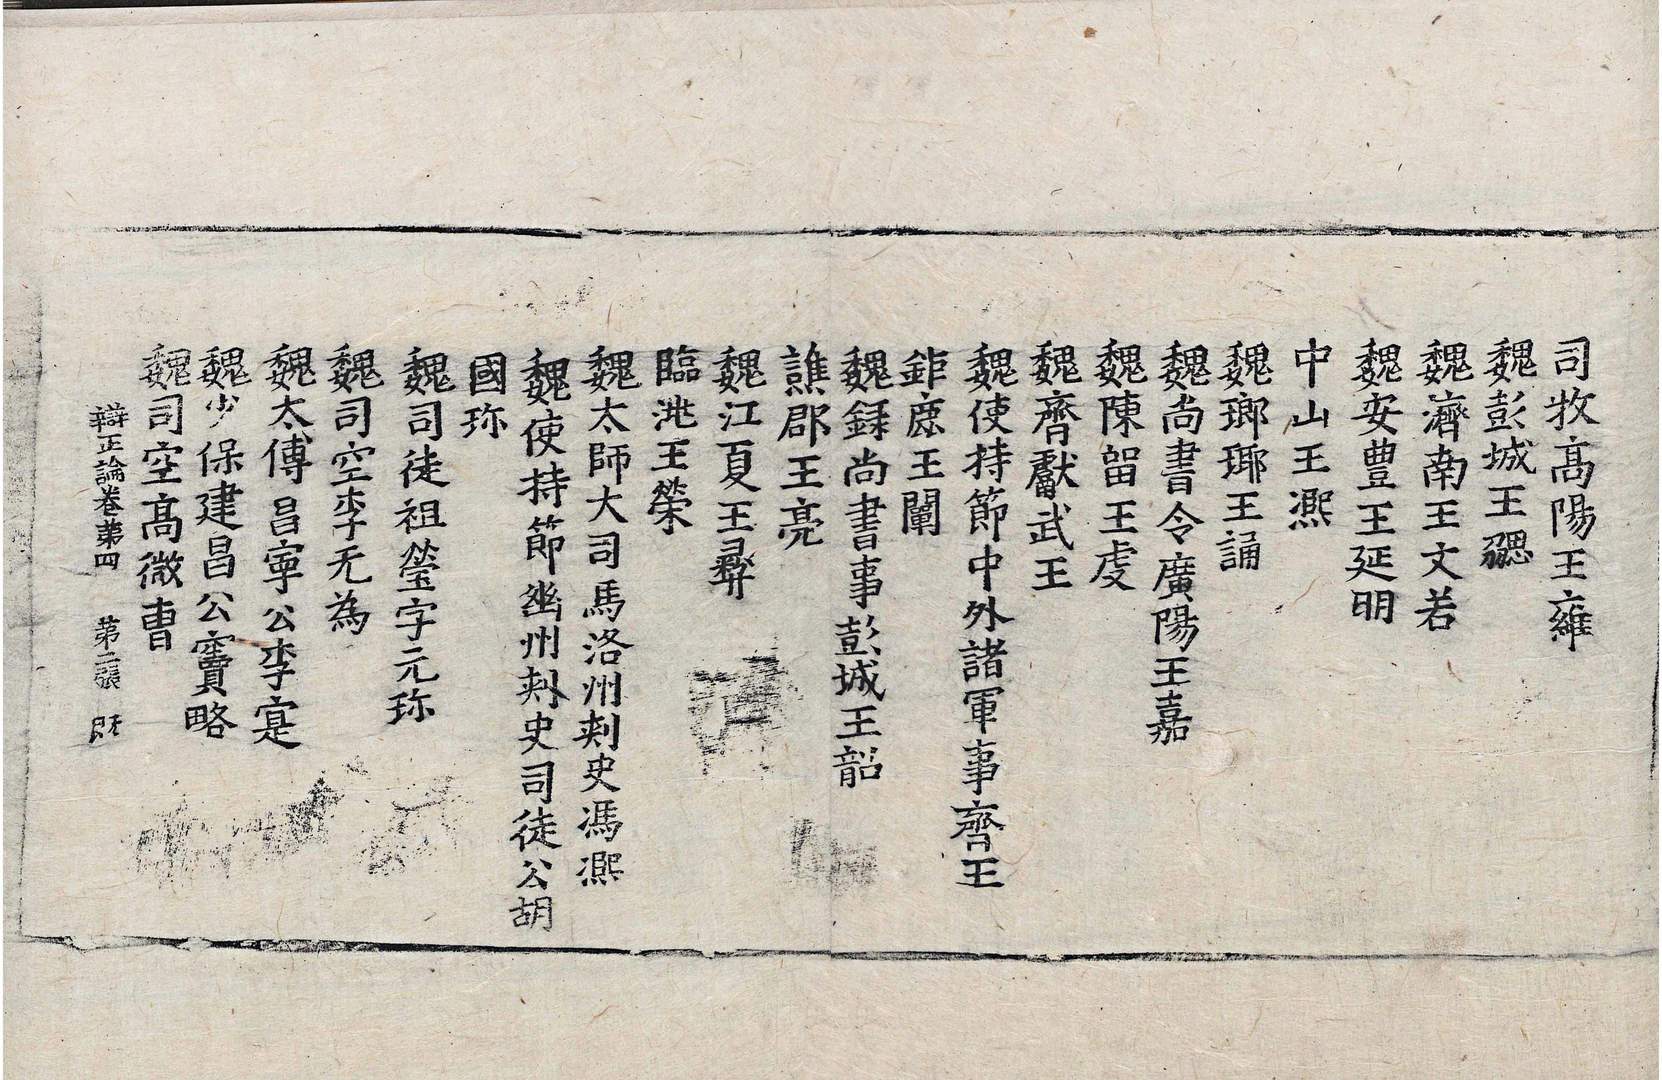 司牧高陽王雍
魏彭城王勰
魏濟南王文若
魏安豊王延明
中山王熈
魏瑯瑘王誦
魏尚書令廣陽王嘉
魏陳留王虔
魏齊獻武王
魏使持節中外諸軍事齊王
鉅鹿王闡
魏録尚書事彭城王韶
譙郡王亮
魏江夏王彛
臨洮王榮
魏太師大司馬洛州刾史馮熈
魏使持節幽州刾史司徒公胡
國珎
魏司徒祖瑩字元珎
魏司空李无為
魏太傅昌寧公李寔
魏少保建昌公竇略
魏司空高微曺
辯正論卷苐四 苐二張 旣